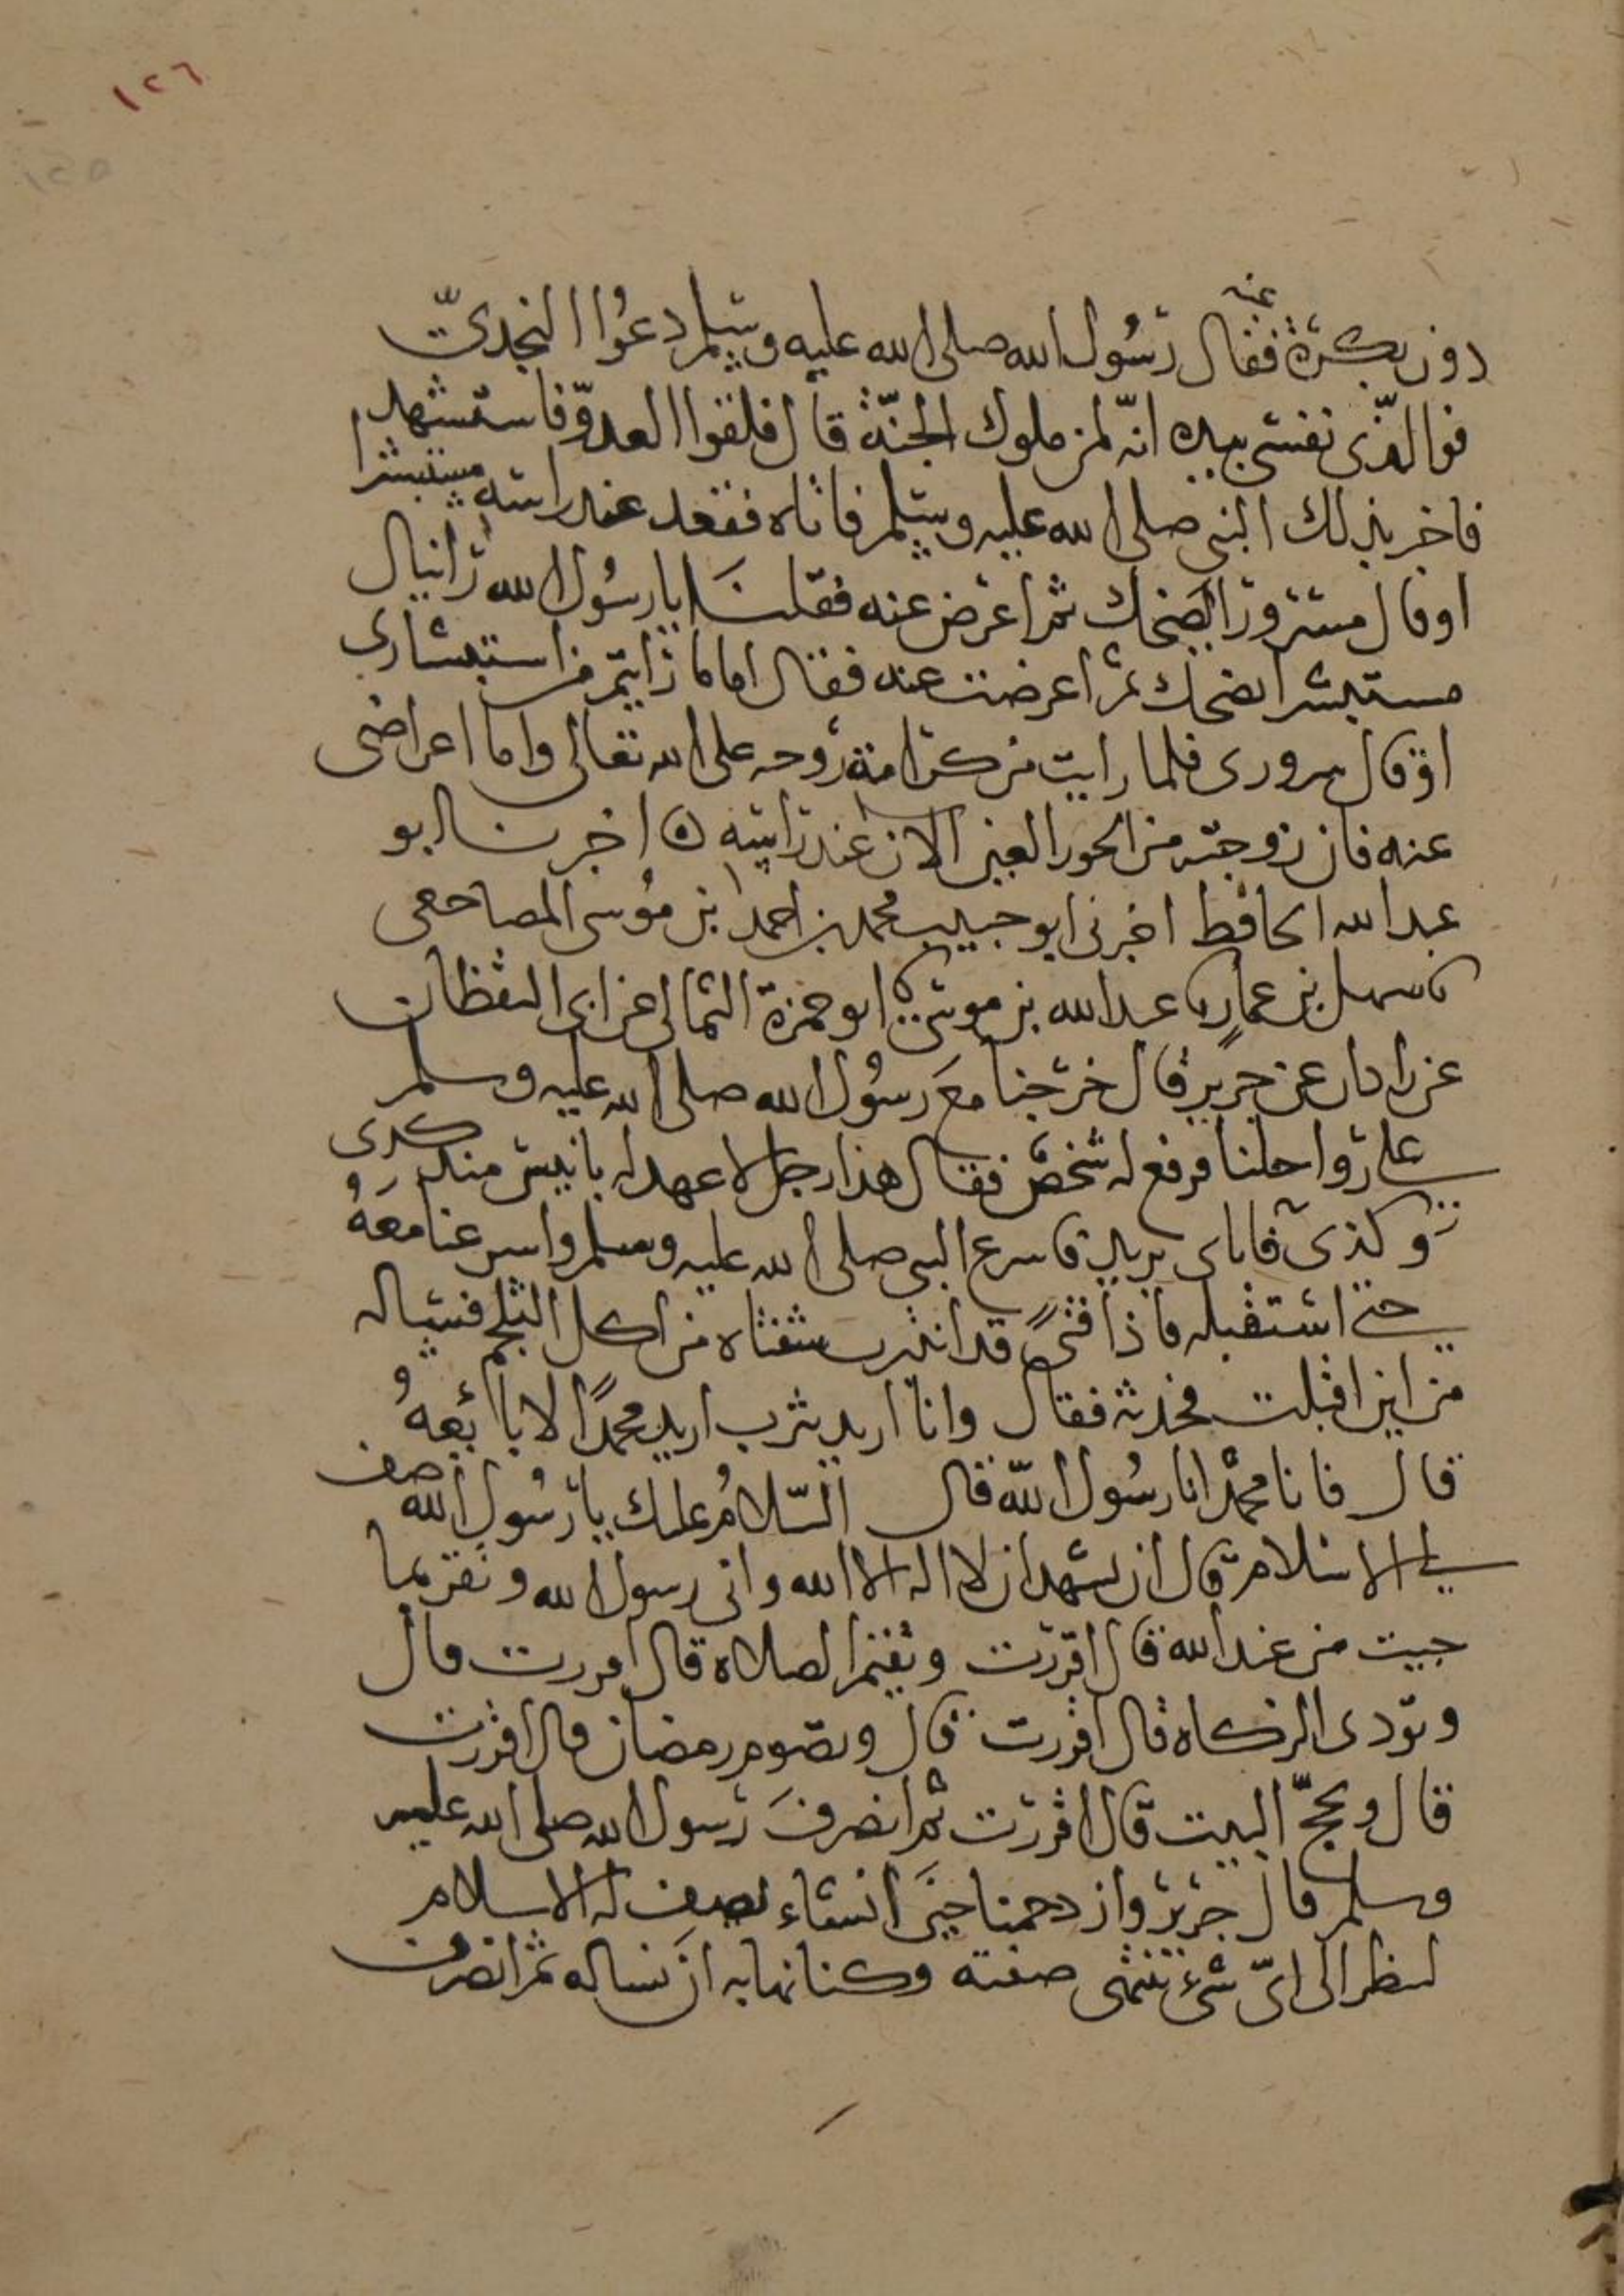 ١٢٦
١٢٥
عنه
دون بكرة فقال رسول الله صلى الله عليه وسلم دعوا النجديّ
فوالذي نفسي بيده انّه لمن ملوك الجنّة قال فلقوا العدوّ فاستشهد
فاخبر بذلك النبي صلى الله عليه وسلم فاتاه فقعد عند راسه مستبشرا
او قال مسرورا يضحك ثم اعرض عنه فقلنا يا رسول الله رايناك
مستبشرا تضحك ثم اعرضت عنه فقال اما ما رايتم من استبشاري
او قال سروري فلما رايت من كرامة روحه على الله تعالى واما اعراضي
عنه فان زوجته من الحور العين الان عند راسه ه اخبرنا ابو
عبد الله الحافظ اخبرني ابو حبيب محمد بن احمد بن موسى المصاحفي
نا سهل بن عمار نا عبد الله بن موسى نا ابو حمزة الثمالي عن ابي اليقظان
عن زاذان عن جرير قال خرجنا مع رسول الله صلى الله عليه وسلم
على رواحلنا فرفع له شخص فقال هذا رجل لا عهد له بانيس منذ كدى
وكذى فاياي يريد فاسرع النبي صلى الله عليه وسلم واسرعنا معه
حتى استقبله فاذا فتىً قد انثرت شفتاه من اكل الثلج فساله
من اين اقبلت فحدثه فقال وانا اريد يثرب اريد محمدًا لابايعهُ
قال فانا محمدٌ انا رسول الله قال السّلامُ عليك يا رسول الله صف
لي الاسلام قال ان تشهد ان لا اله الا الله واني رسول الله وتقر بما
جيت من عند الله قال اقررت وتقيم الصلاة قال اقررت قال
وتودى الزكاة قال اقررت قال وتصوم رمضان قال اقررت
قال وتحجّ البيت قال اقررت ثم انصرف رسول الله صلى الله عليه
وسلم قال جرير وازدحمنا حين انشاء يصف له الاسلام
لننظر الى ايّ شيء تنتهى صفته وكنا نهابه ان نساله ثم انصرف